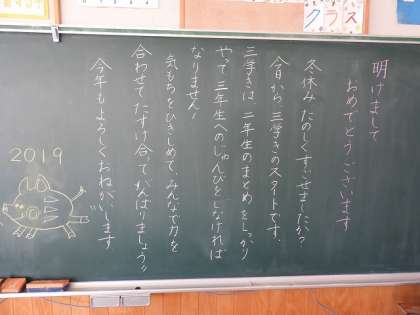 クラス
明けまして
おめでとうございます
冬休み たのしくすごせましたか?
今日から、三学きのスタートです。
三学きは、二年生のまとめをしっかり
やって三年生へのじゅんびをしなければ
なりません!
気もちをひきしめて、みんなで力を
合わせてたすけ合ってがんばりましょう!!
今年もよろしくおねがいします
2019